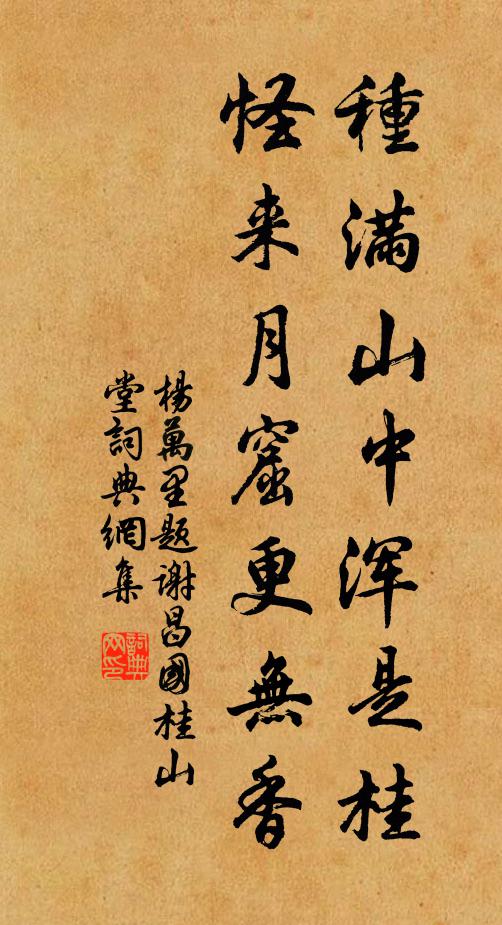 種滿山中浑是桂
怪来月窟更無香
楊萬里題謝昌國桂山
堂詞典網集
詞典
网印